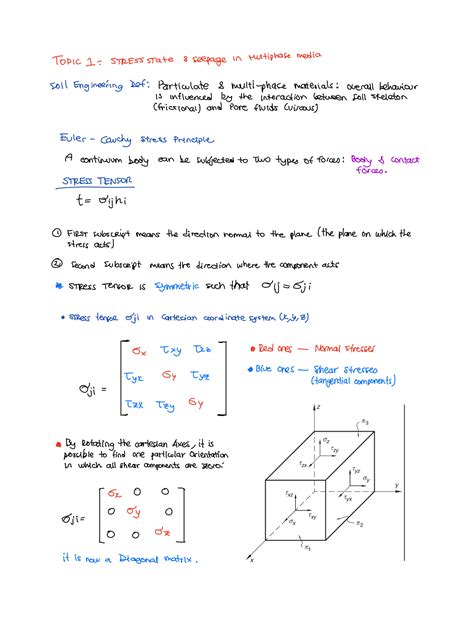 TOPIC 1 :- STRESS STATE & seepage in Multiphase media
Soil Engineering Def: Particulate & multi-phase materials: overall behaviour
is influenced by the interaction between soil skeleton
(frictional) and Pore fluids (viscous)
Euler - Cauchy Stress Principle
A continuum body can be subjected to two types of forces: Body & contact
forces.
STRESS TENSOR
t = σij ni
① FIRST subscript means the direction normal to the plane (the plane on which the
stress acts)
② Second Subscript means the direction where the component acts
* STRESS TENSOR IS symmetric such that σij = σji
• Stress tensor σji in Cartesian coordinate system (x,y,z)
σx τxy τxz
τyx σy τyz
σji =
τzx τzy σy
• Red ones — Normal stresses
• Blue ones — Shear stresses
(tangential components)
• By Rotating the cartesian Axes, it is
possible to find one particular orientation
in which all shear components are zero:
σx 0 0
σji = 0 σy 0
0 0 σz
it is now a Diagonal matrix.
z
π3
σz
τzy
τzx
τyz
σy
τyx
y
τxz
σx
τxy
π2
π1
x